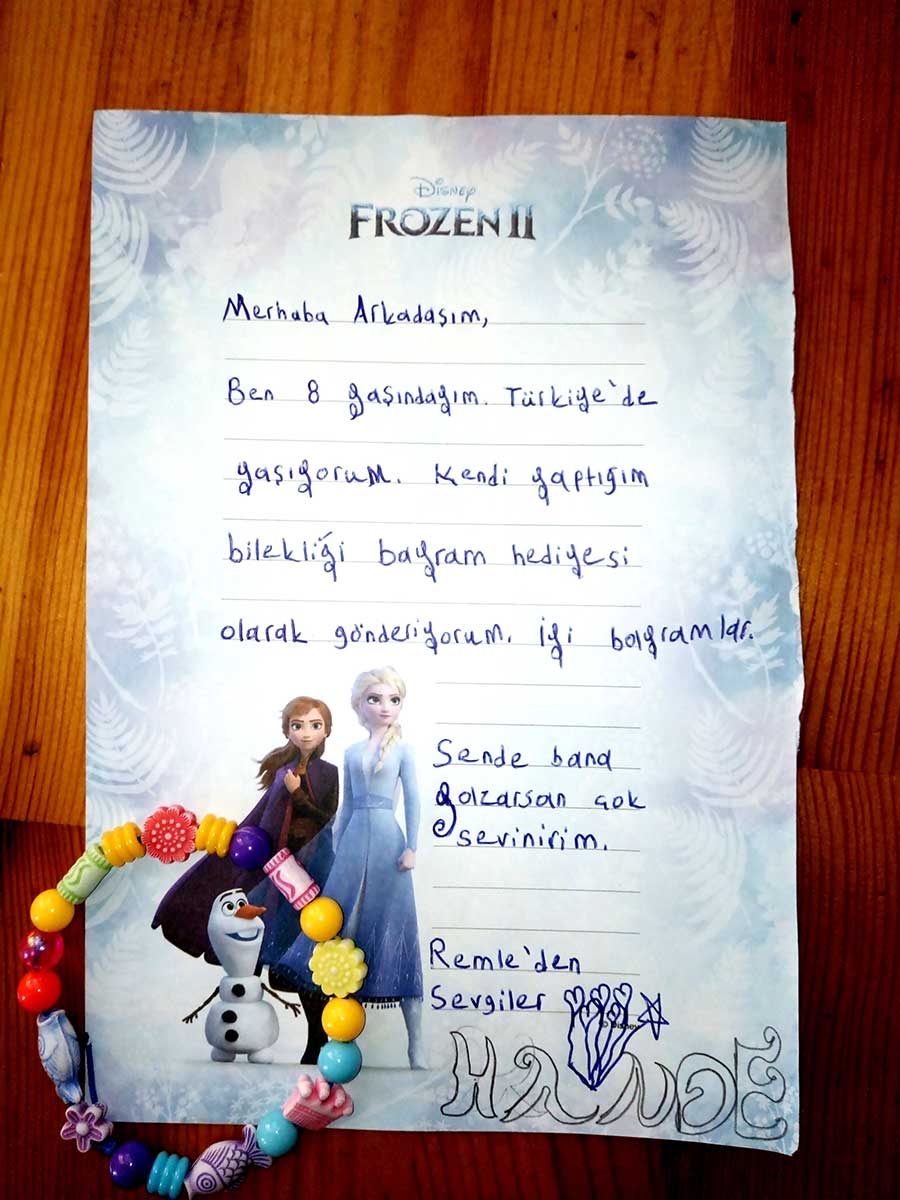 Disney
FROZEN II
Merhaba Arkadaşım,
Ben 8 yaşındayım. Türkiye'de
yaşıyorum. Kendi yaptığım
bilekliği bayram hediyesi
olarak gönderiyorum. İyi bayramlar.
Sende bana
yazarsan çok
sevinirim.
Remle'den
Sevgiler
© Disney
HANDE